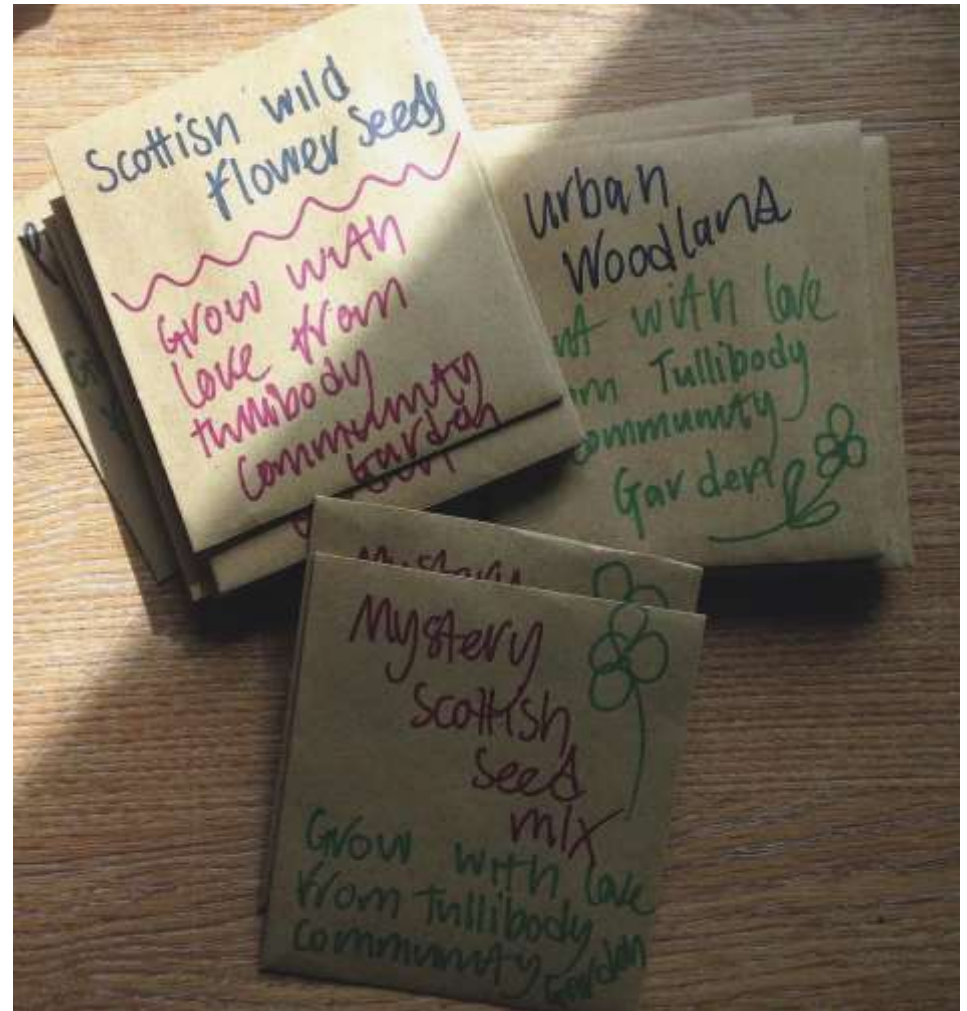 Scottish wild
flower seeds
Grow with
love from
tullibody
community
garden
urban
Woodland
with love
Tullibody
community
Garden
Mystery
Mystery
Scottish
seed
mix
Grow with love
from Tullibody
community Garden